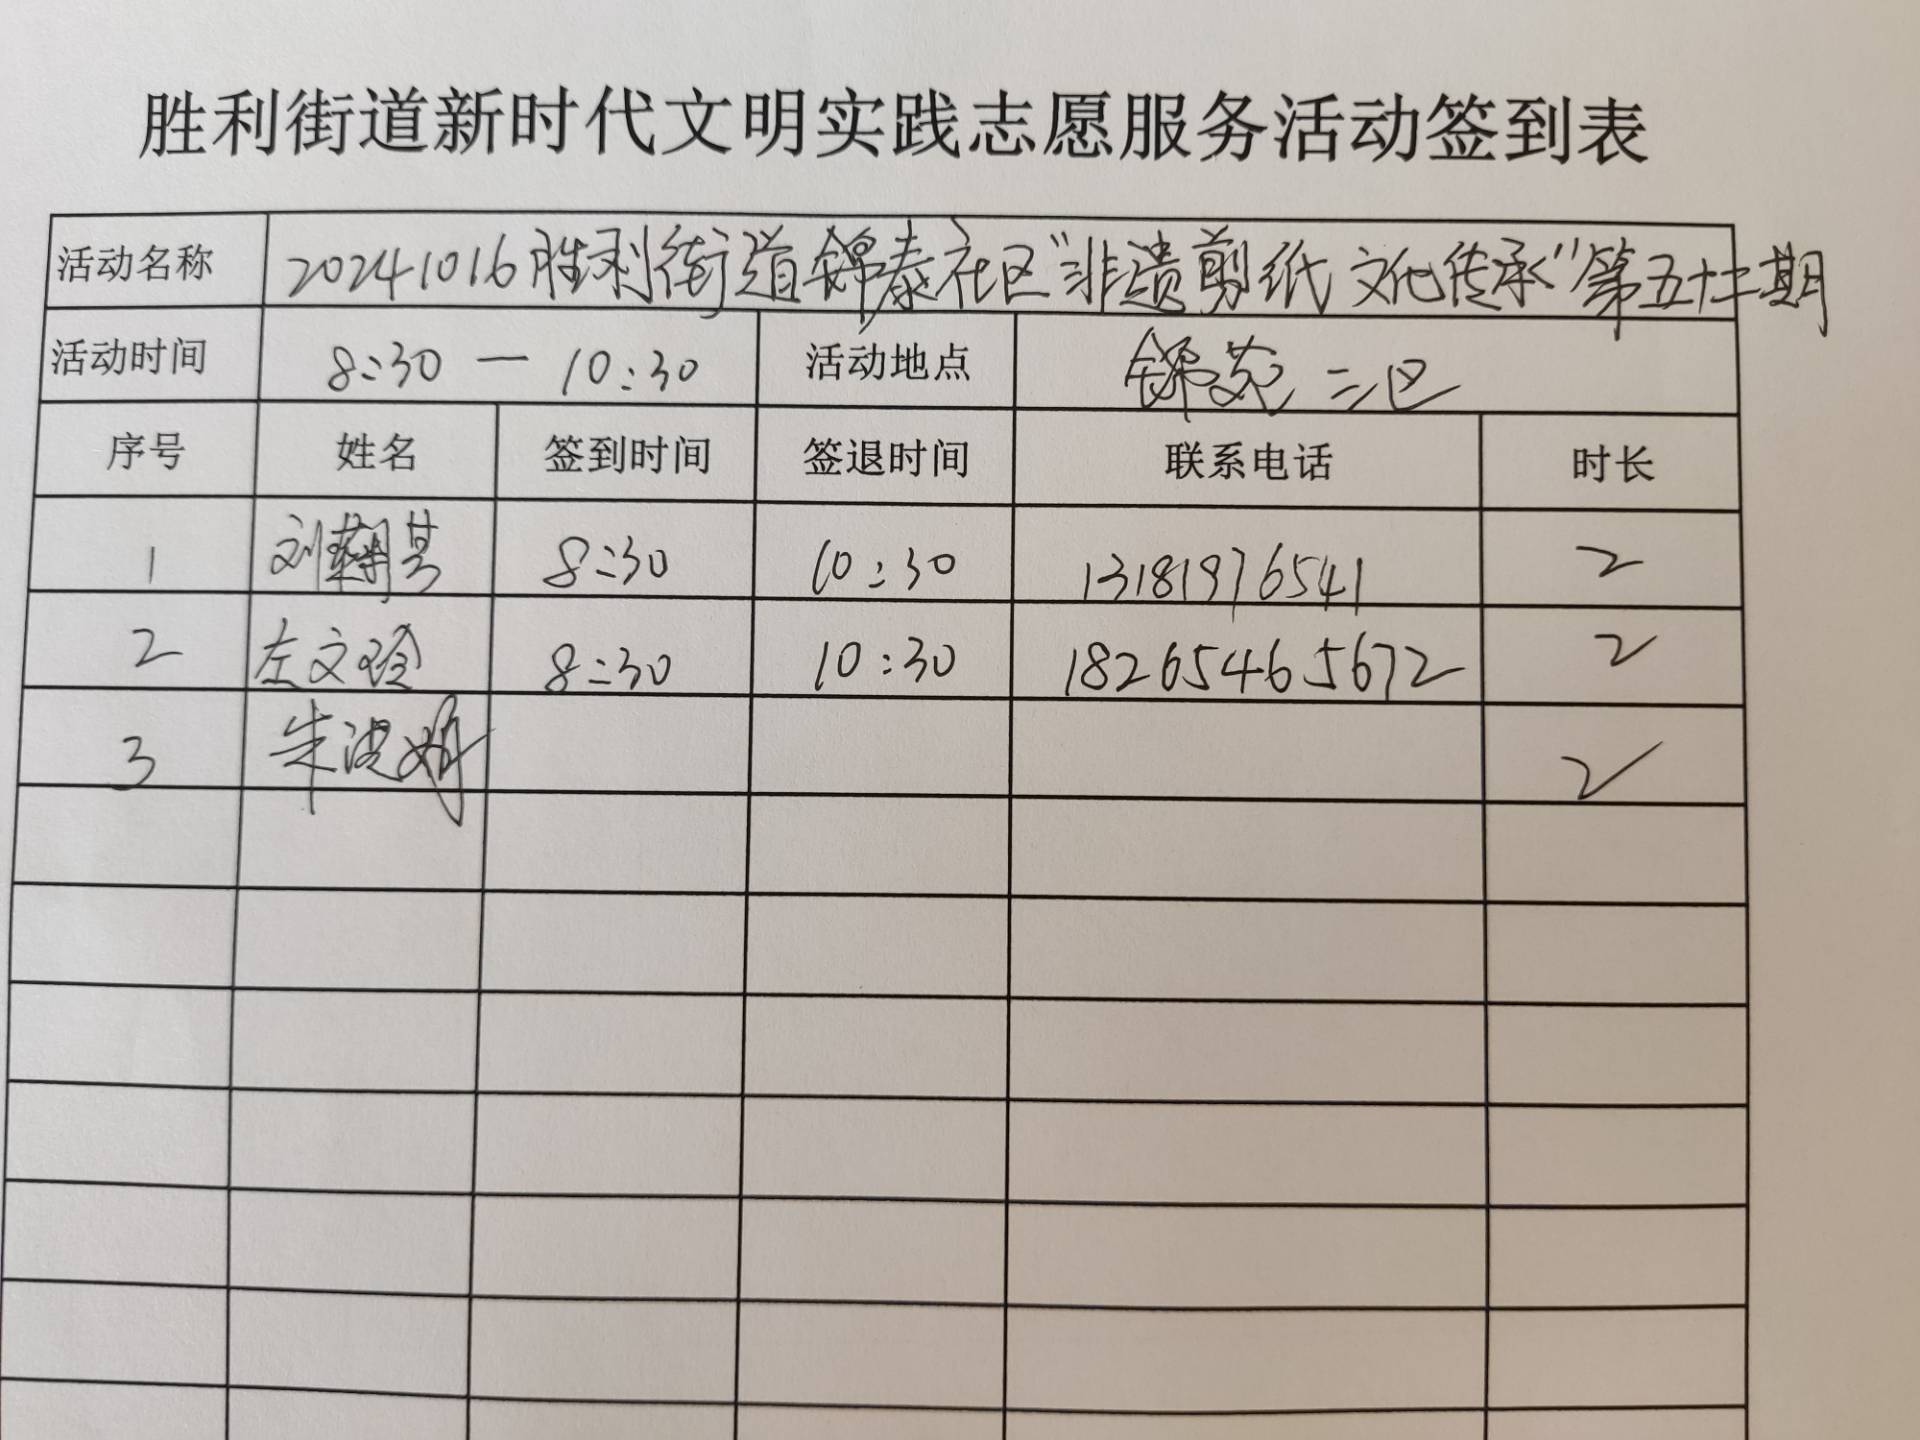 胜利街道新时代文明实践志愿服务活动签到表
活动名称 20241016胜利街道锦泰社区"非遗剪纸 文化传承"第五十二期
活动时间 8:30 — 10:30 活动地点 锦苑二区
序号 姓名 签到时间 签退时间 联系电话 时长
1 刘 8:30 10:30 13181976541 2
2 左文玲 8:30 10:30 18265465672 2
3 朱 2